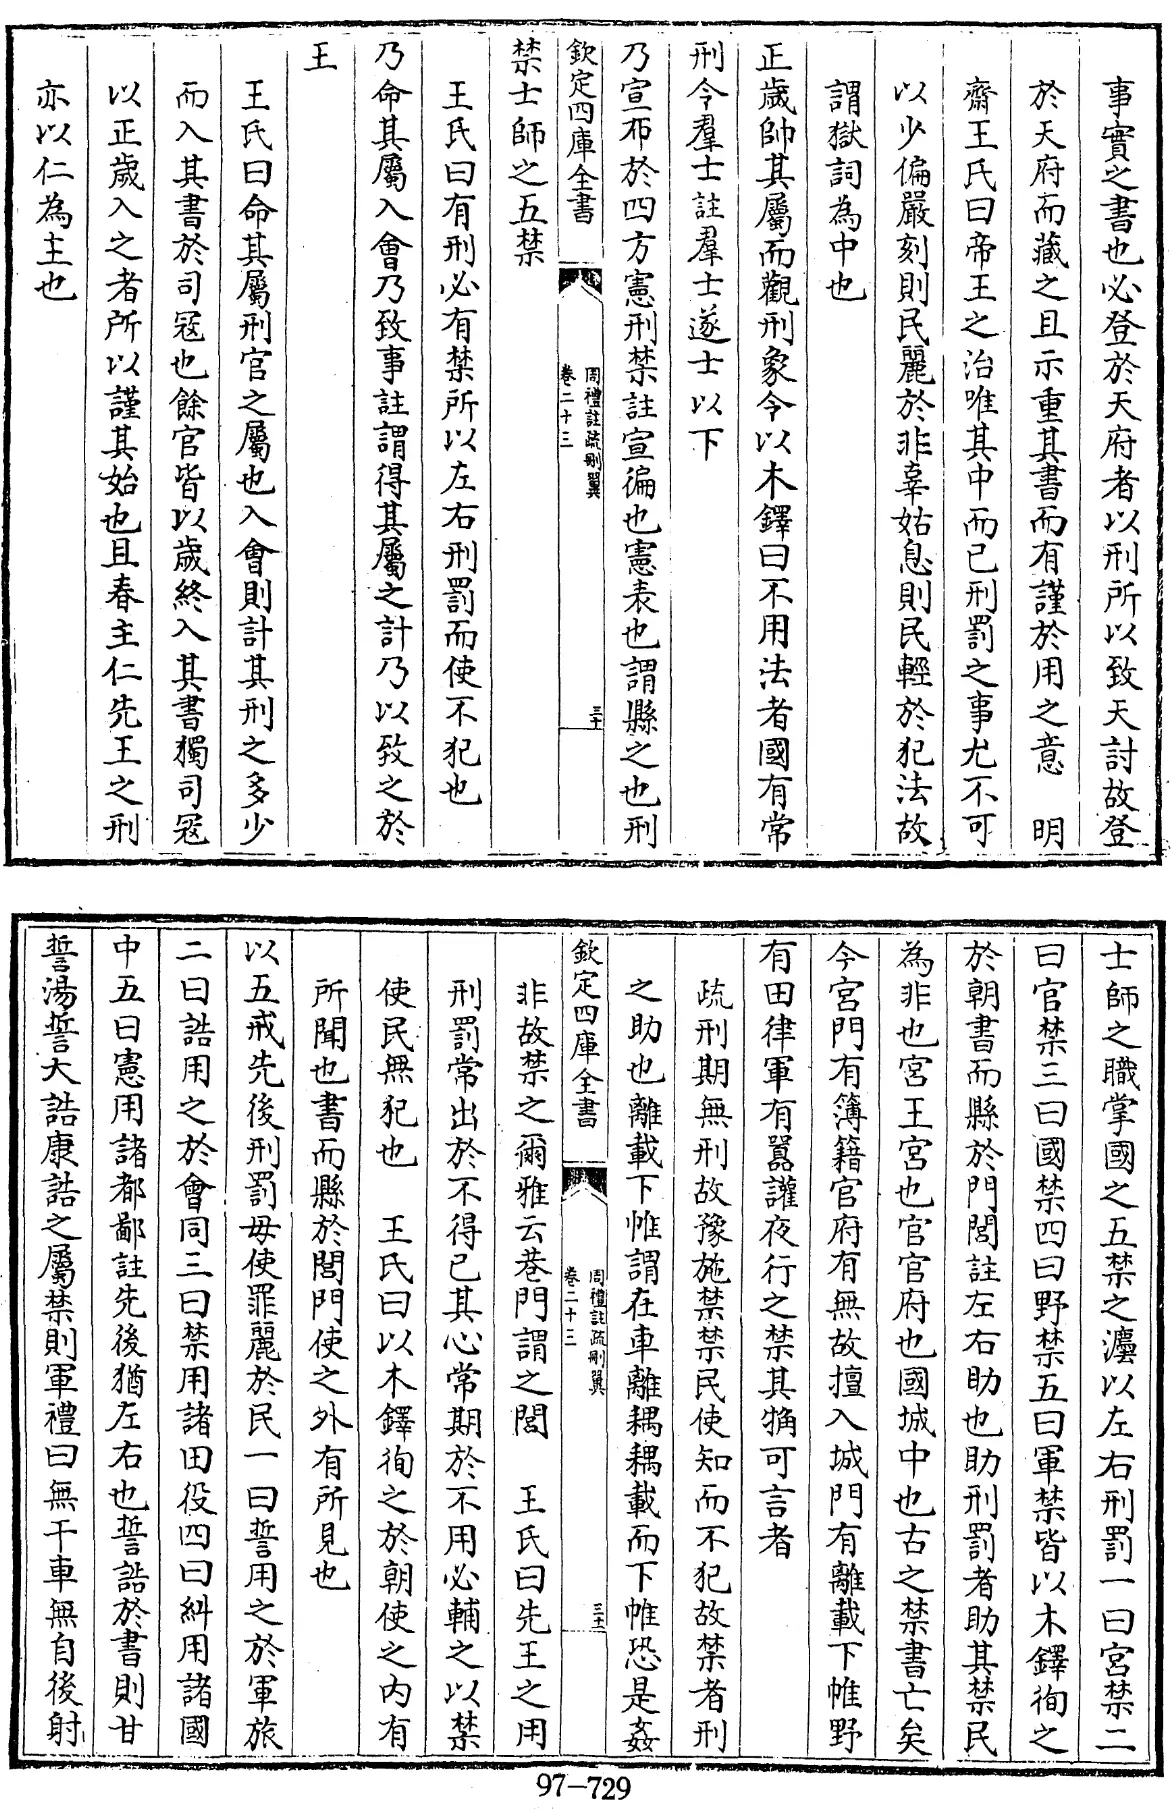 事實之書也必登於天府者以刑所以致天討故登
於天府而藏之且示重其書而有謹於用之意　明
齋王氏曰帝王之治唯其中而已刑罰之事尤不可
以少偏嚴刻則民麗於非辜姑息則民輕於犯法故
謂獄詞為中也
正歲帥其屬而觀刑象令以木鐸曰不用法者國有常
刑令羣士註羣士遂士以下
乃宣布於四方憲刑禁註宣徧也憲表也謂縣之也刑
欽定四庫全書
周禮註疏刪翼
卷二十三
三十
禁士師之五禁
王氏曰有刑必有禁所以左右刑罰而使不犯也
乃命其屬入會乃致事註謂得其屬之計乃以致之於
王
王氏曰命其屬刑官之屬也入會則計其刑之多少
而入其書於司寇也餘官皆以歲終入其書獨司寇
以正歲入之者所以謹其始也且春主仁先王之刑
亦以仁為主也
士師之職掌國之五禁之灋以左右刑罰一曰宮禁二
曰官禁三曰國禁四曰野禁五曰軍禁皆以木鐸徇之
於朝書而縣於門閭註左右助也助刑罰者助其禁民
為非也宮王宮也官官府也國城中也古之禁書亡矣
今宮門有簿籍官府有無故擅入城門有離載下帷野
有田律軍有嚚讙夜行之禁其觕可言者
疏刑期無刑故豫施禁禁民使知而不犯故禁者刑
之助也離載下帷謂在車離耦耦載而下帷恐是姦
欽定四庫全書
周禮註疏刪翼
卷二十三
三十一
非故禁之爾雅云巷門謂之閭　王氏曰先王之用
刑罰常出於不得已其心常期於不用必輔之以禁
使民無犯也　王氏曰以木鐸徇之於朝使之内有
所聞也書而縣於閭門使之外有所見也
以五戒先後刑罰毋使罪麗於民一曰誓用之於軍旅
二曰誥用之於會同三曰禁用諸田役四曰糾用諸國
中五曰憲用諸都鄙註先後猶左右也誓誥於書則甘
誓湯誓大誥康誥之屬禁則軍禮曰無干車無自後射
97-729